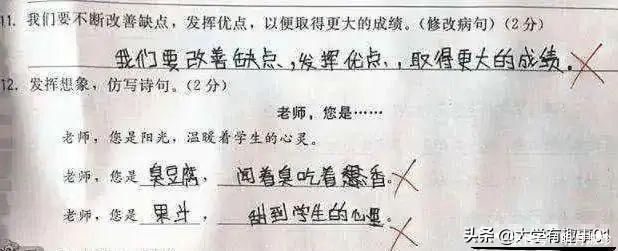 11. 我们要不断改善缺点，发挥优点，以便取得更大的成绩。(修改病句)(2分)
我们要改善缺点，发挥优点，取得更大的成绩。
12. 发挥想象，仿写诗句。(2分)
老师，您是……
老师，您是阳光，温暖着学生的心灵。
老师，您是臭豆腐，闻着臭吃着香。
老师，您是果汁，甜到学生的心里。
头条@大学有趣事01